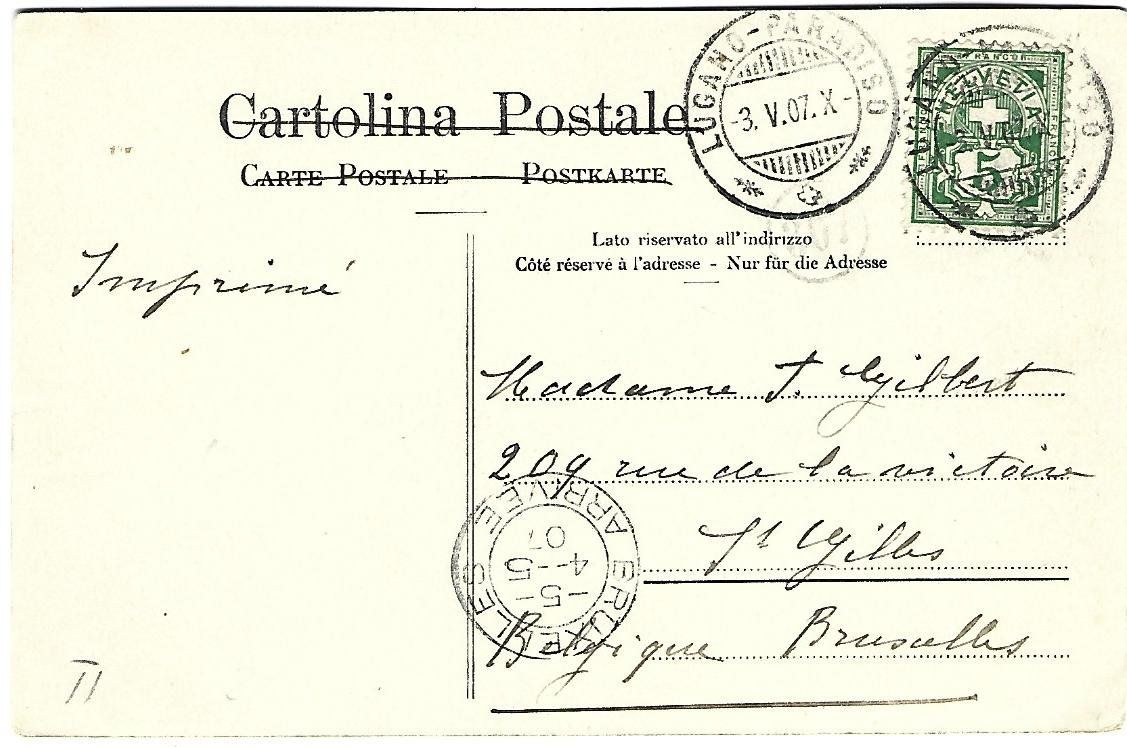 Cartolina Postale
CARTE POSTALE POSTKARTE
LUGANO-PARADISO
-3. V. 07. X-
FRANCO
HELVETIA
5
Lato riservato all'indirizzo
Côté réservé à l'adresse - Nur für die Adresse
Imprimé
Madame J. Gilbert
209 rue de la victoire
St Gilles
Belgique Bruxelles
BRUXELLES ARRIVEE
5-
4-5
07
II